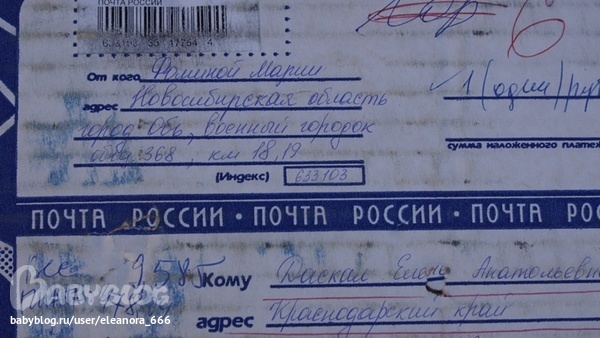 ПОЧТА РОССИИ
От кого Фоминой Марии
адрес Новосибирская область
город Обь, военный городок
368, км 18,19
(Индекс) 633103
1 (один) руб
сумма наложенного плате
ПОЧТА РОССИИ • ПОЧТА РОССИИ • ПОЧТА РОС
9585 Кому Даскал Елене Анатольевне
адрес Краснодарский край
BABYBLOG
babyblog.ru/user/eleanora_666